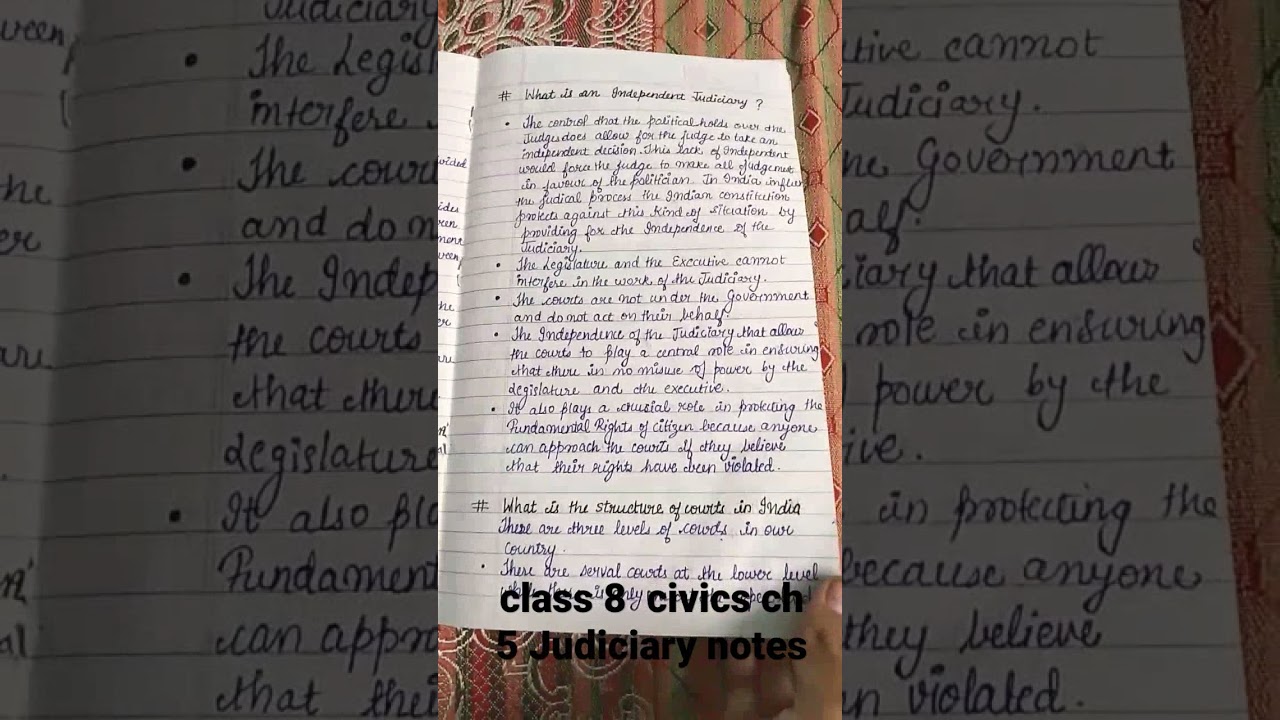 # What is an Independent Judiciary ?
• The control that the political holds over the
Judge does allow for the judge to take an
independent decision. This lack of Independent
would force the judge to make all judgement
in favour of the politician. In India influen
the judical process the Indian constitution
protects against this kind of sitciation by
providing for the Independence of the
Judiciary.
• The Legislature and the Executive cannot
interfere in the work of the Judiciary.
• The courts are not under the Government
and do not act on their behalf.
• The Independence of the Judiciary that allows
the courts to play a central role in ensuring
that there in no misuse of power by the
Legislature and the executive.
• It also plays a crusial role in protecting the
Fundamental Rights of citizen because anyone
can approach the courts if they believe
that their rights have been violated.
# What is the structure of courts in India
There are three levels of courts in our
country.
• There are serval courts at the lower level
class 8 civics ch
5 Judiciary notes